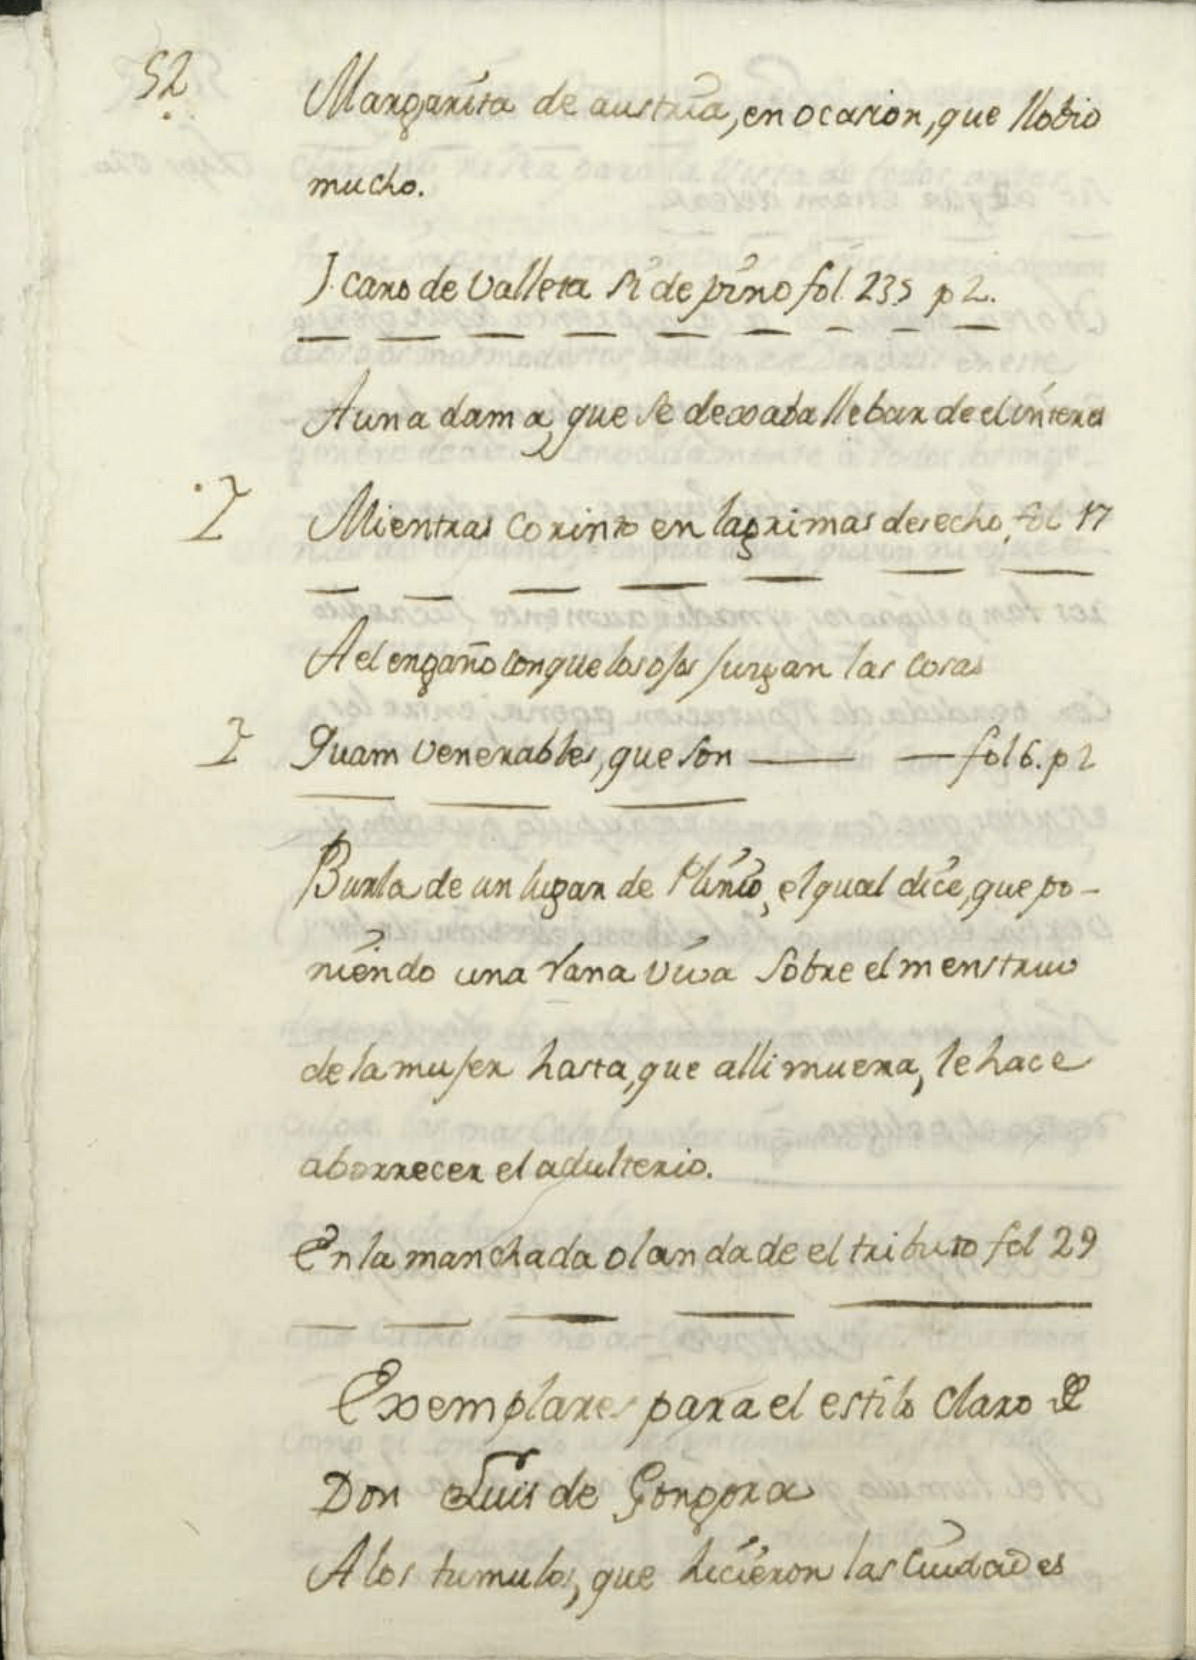 52
Margarita de austria, en ocasion, que llobio
mucho.
J. caro de valleta si de pino fol. 235 p 2.
A una dama, que se dexaba llebar de el interes
I Mientras Corinto en lagrimas desecho, fol 17
A el engaño con que los ojos jurgan las cosas
I Quam venerables, que son fol 6. p 2
Burla de un lugar de Plinio, el qual dice, que po-
niendo una rana viva sobre el menstruo
de la mujer hasta, que alli muera, le hace
aborrecer el adulterio.
En la manchada olanda de el tributo fol 29
Exemplares para el estilo claro de
Don Luis de Gongora
A los tumulos, que hicieron las Ciudades